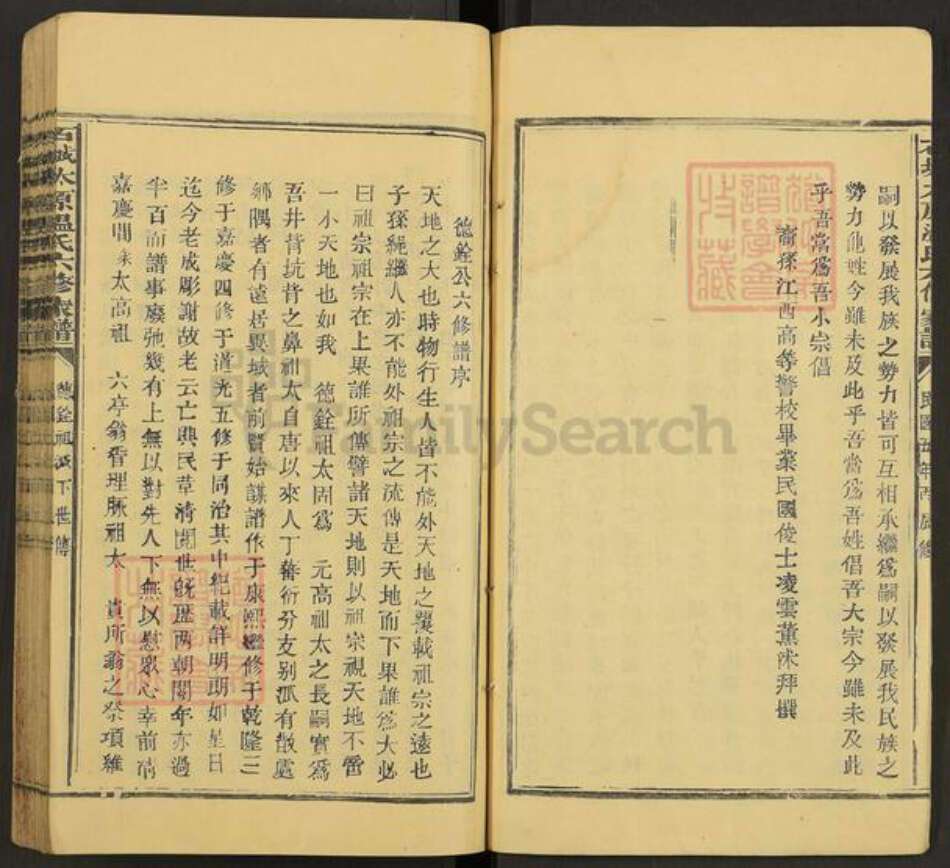 嗣以發展我族之勢力皆可互相承繼爲嗣以發展我民族之
勢力他姓今雖未及此乎吾當爲吾姓倡吾大宗今雖未及此
乎吾當爲吾小宗倡
裔孫江西高等警校畢業民國俊士凌雲薰沐拜撰
民國廿年
德銓公六修譜序
天地之大也時物行生人皆不能外天地之覆載祖宗之遠也
子孫繩繼人亦不能外祖宗之流傳是天地而下果誰爲大必
曰祖宗祖宗在上果誰所傳譬諸天地則以祖宗視天地不啻
一小天地也如我 德銓祖太固爲 元高祖太之長嗣實爲
吾井背坑背之鼻祖太自唐以來人丁蕃衍分支别派有散處
鄉隅者有遠居異域者前賢始謀譜作于康熙繼修于乾隆三
修于嘉慶四修于道光五修于同治其中紀載詳明朗如星日
迄今老成彫謝故老云亡興民革清開世旣歷兩朝閱年亦過
半百而譜事廢弛幾有上無以對先人下無以慰眾心幸前清
嘉慶間 太高祖 六亭翁督理脉祖太 貴所翁之祭項雖
石城太原溫氏六修家譜
德銓祖派下世傳
FamilySearch